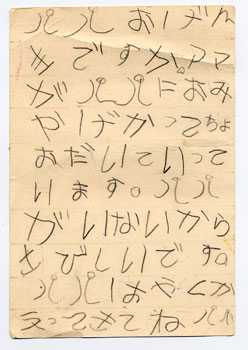 パパ おげん
きですか。ママ
が パパにおみ
やげかってちょ
おだいていって
います。パパ
がいないから
さびしいです。
パパはやくか
えってきてね パパ